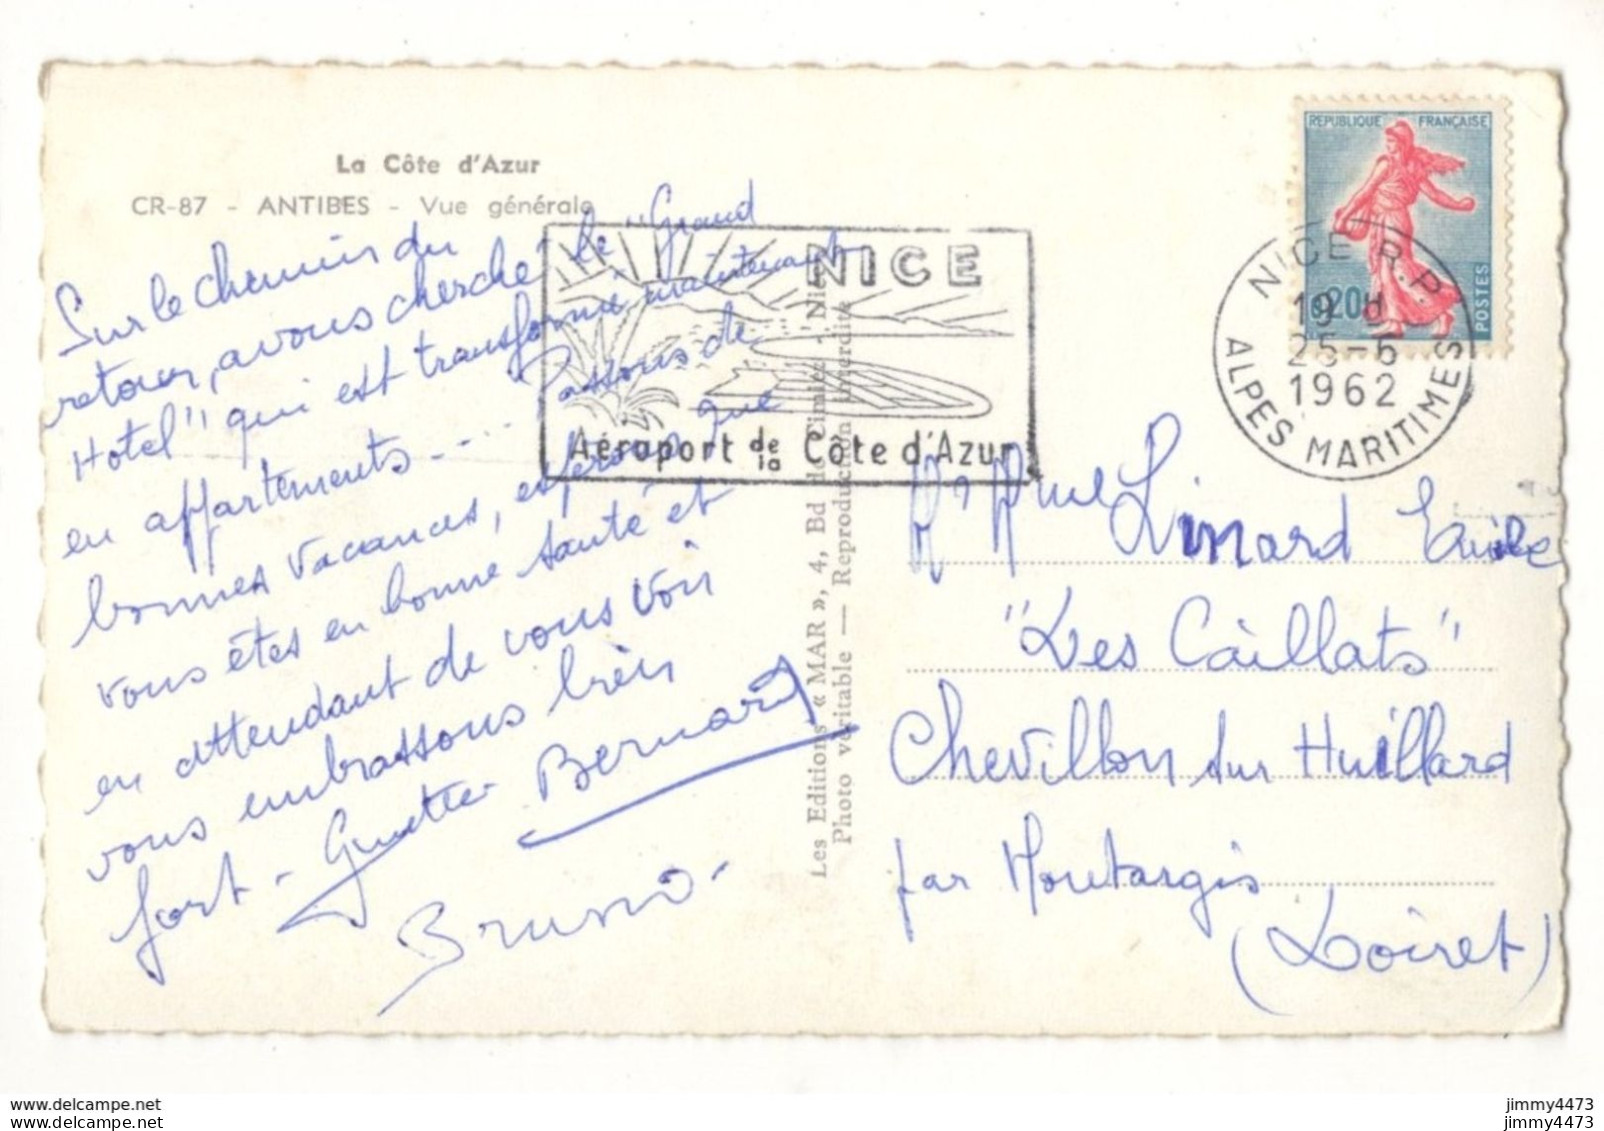 La Côte d'Azur
CR-87 - ANTIBES - Vue générale
Sur le chemin du
retour, avons cherché le "Grand
Hotel" qui est transformé maintenant
en appartements.... Passons de
bonnes vacances, espérons que
vous êtes en bonne santé et
en attendant de vous voir
vous embrassons bien
fort - Guette Bernard
Bruno -
NICE
Aéroport de la Côte d'Azur
Les Editions « MAR », 4, Bd de Cimiez - Nice
Photo véritable — Reproduction interdite
REPUBLIQUE FRANÇAISE
0,20
POSTES
NICE R.P.
19 H
25-5
1962
ALPES MARITIMES
Linard
"Les Caillats"
Chevillon sur Huillard
par Montargis
(Loiret)
www.delcampe.net
www.delcampe.net
jimmy4473
jimmy4473